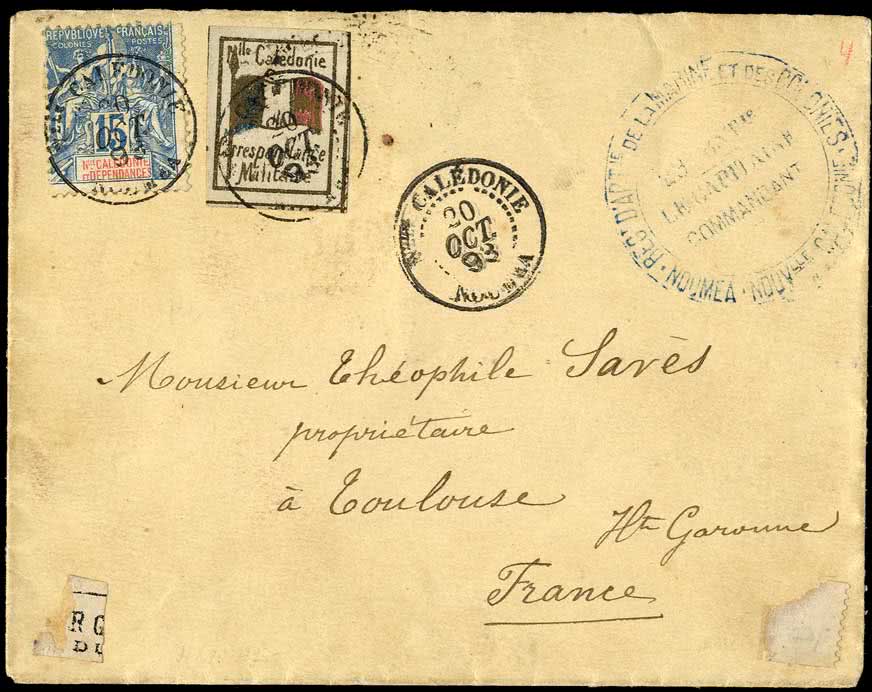 RÉPUBLIQUE FRANÇAISE
COLONIES POSTES
15
Nlle CALÉDONIE
ET DÉPENDANCES
CALÉDONIE
20
OCT.
Nlle Calédonie
Correspondance
Militaire
20
OCT
Nlle CALÉDONIE
20
OCT.
93
NOUMEA
RÉGt D'ARTie DE LA MARINE ET DES COLONIES
LE CAPITAINE
COMMANDANT
NOUMEA · NOUVelle CALÉDONIE
4
Monsieur Théophile Savès
propriétaire
à Toulouse
Hte Garonne
France
R G